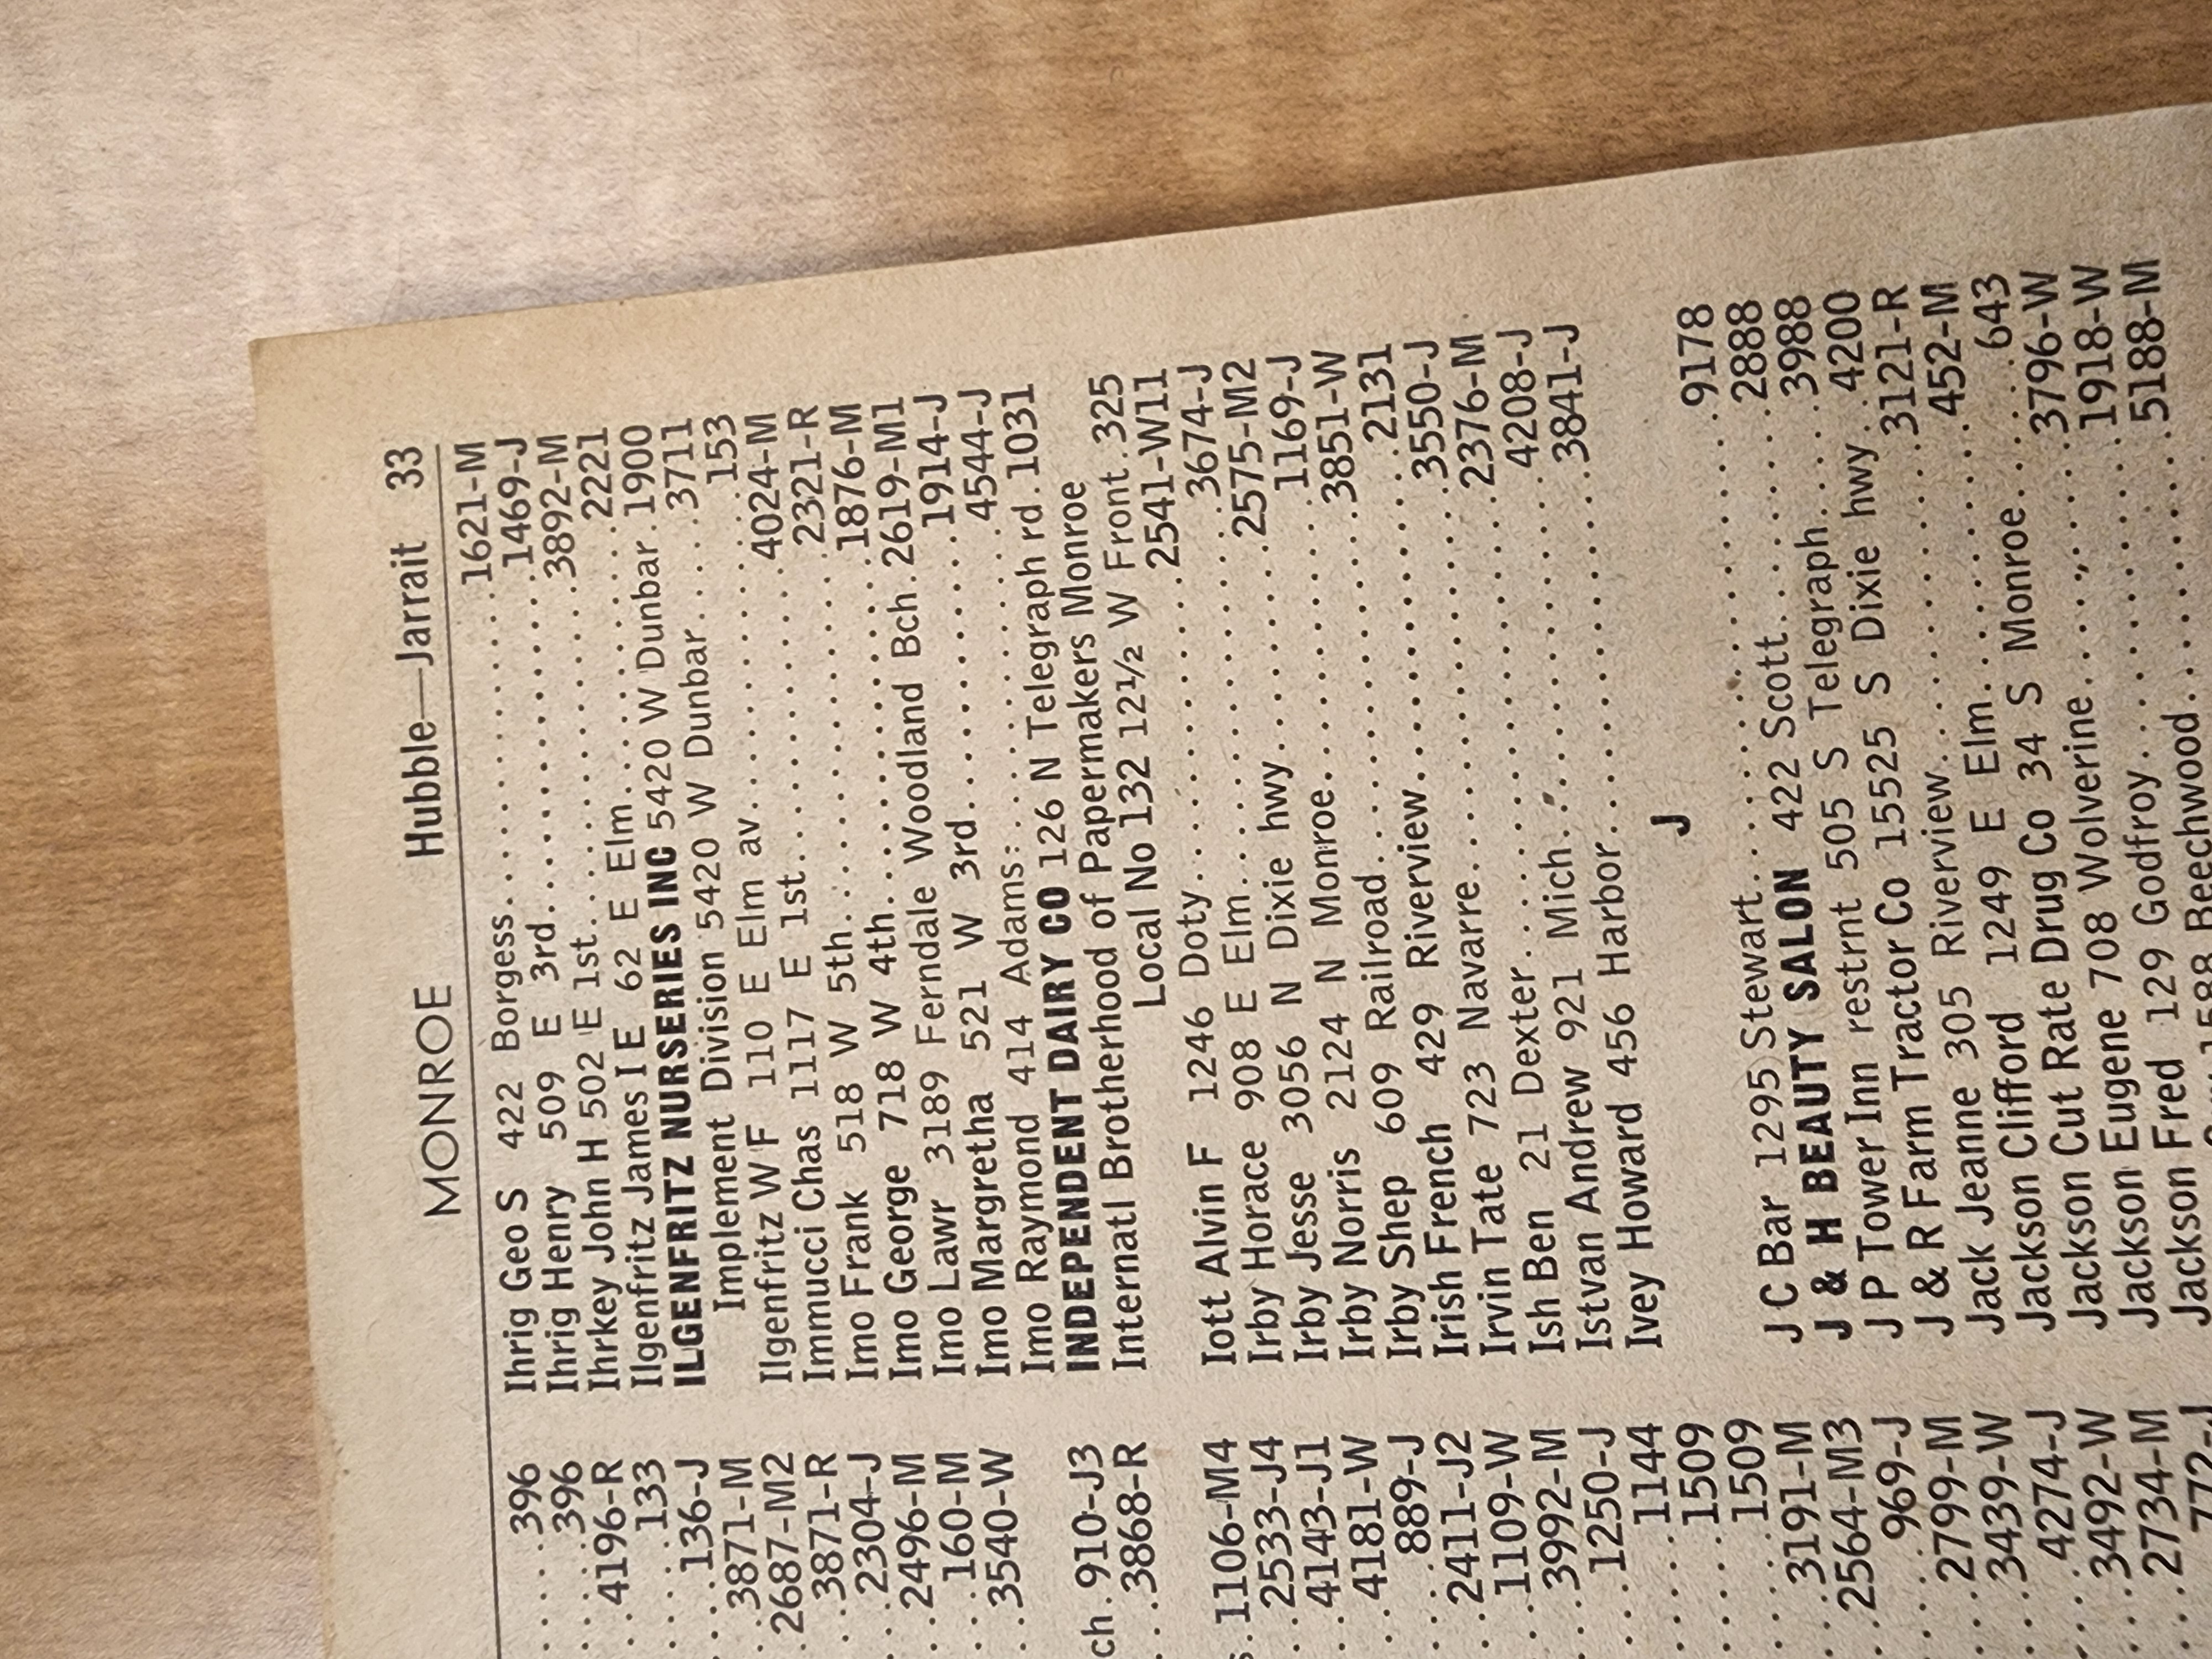 MONROE Hubble—Jarrait 33
396
396
4196-R
133
136-J
3871-M
2687-M2
3871-R
2304-J
2496-M
160-M
3540-W
ch. 910-J3
3868-R
1106-M4
2533-J4
4143-J1
4181-W
889-J
2411-J2
1109-W
3992-M
1250-J
1144
1509
1509
3191-M
2564-M3
969-J
2799-M
3439-W
4274-J
3492-W
2734-M
Ihrig Geo S 422 Borgess 1621-M
Ihrig Henry 509 E 3rd 1469-J
Ihrkey John H 502 E 1st 3892-M
Ilgenfritz James I E 62 E Elm 2221
ILGENFRITZ NURSERIES INC 5420 W Dunbar 1900
Implement Division 5420 W Dunbar 3711
Ilgenfritz W F 110 E Elm av 153
Immucci Chas 1117 E 1st 4024-M
Imo Frank 518 W 5th 2321-R
Imo George 718 W 4th 1876-M
Imo Lawr 3189 Ferndale Woodland Bch 2619-M1
Imo Margretha 521 W 3rd 1914-J
Imo Raymond 414 Adams 4544-J
INDEPENDENT DAIRY CO 126 N Telegraph rd 1031
Internatl Brotherhood of Papermakers Monroe
Local No 132 12½ W Front 325
Iott Alvin F 1246 Doty 2541-W11
Irby Horace 908 E Elm 3674-J
Irby Jesse 3056 N Dixie hwy 2575-M2
Irby Norris 2124 N Monroe 1169-J
Irby Shep 609 Railroad 3851-W
Irish French 429 Riverview 2131
Irvin Tate 723 Navarre 3550-J
Ish Ben 21 Dexter 2376-M
Istvan Andrew 921 Mich 4208-J
Ivey Howard 456 Harbor 3841-J
J
J C Bar 1295 Stewart 9178
J & H BEAUTY SALON 422 Scott 2888
J P Tower Inn restrnt 505 S Telegraph 3988
J & R Farm Tractor Co 15525 S Dixie hwy 4200
Jack Jeanne 305 Riverview 3121-R
Jackson Clifford 1249 E Elm 452-M
Jackson Cut Rate Drug Co 34 S Monroe 643
Jackson Eugene 708 Wolverine 3796-W
Jackson Fred 129 Godfroy 1918-W
Jackson 1588 Beechwood 5188-M